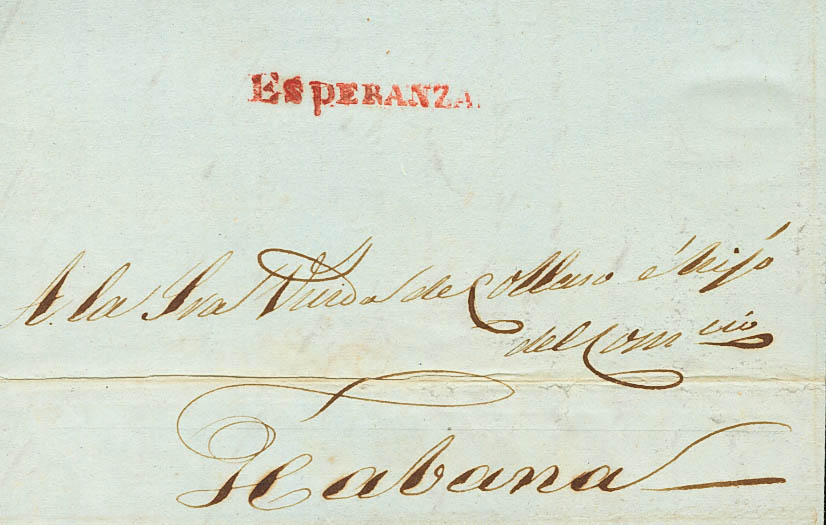 ESPERANZA.
A la Sra Viuda de Collaso é hijo
del Comcio
Habana